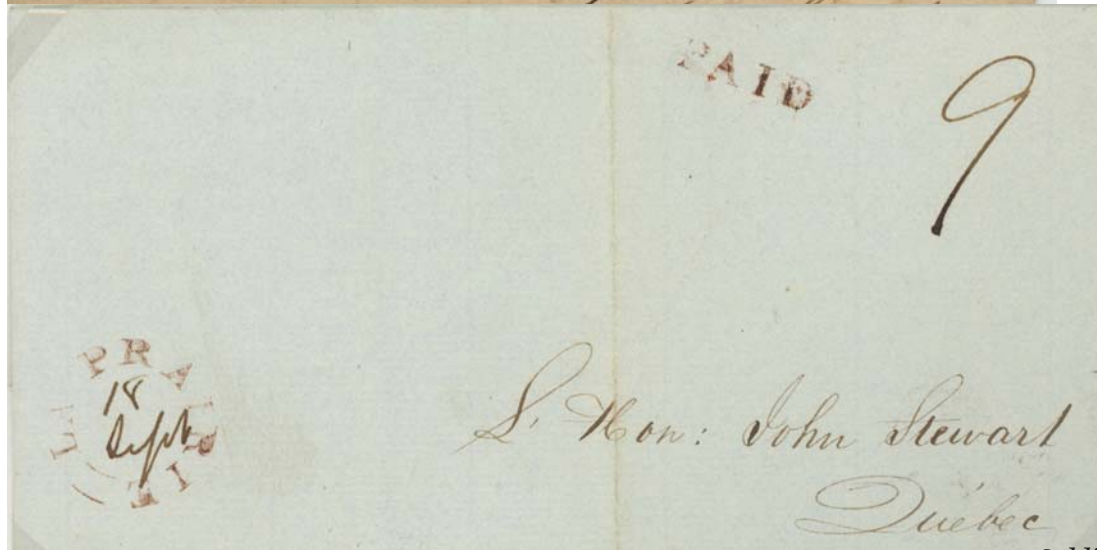 PAID
9
LA PRAIRIE
18
Sept
L' Hon: John Stewart
Québec